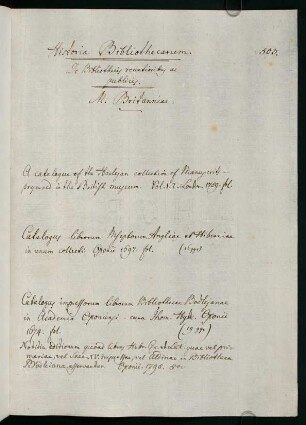 Historia Bibliothecarum.
500.
De Bibliothecis recentioribus ac
publicis.
M. Britanniae.
A catalogue of the Harleyan collection of Manuscripts
preserved in the British museum. Vol. 1. 2. London 1759. fol.
Catalogus librorum Msstorum Angliae et Hiberniae
in unum collecti Oxonii 1697. fol.
Catalogus impressorum librorum Bibliothecae Bodlejanae
in Academia Oxoniensi cura Thom. Hyde. Oxonii
1674. fol.
Notitia editionum quoad libros Hebr. Gr. et Lat. quae vel pri-
mariae, vel Saec. XV. impressae, vel Aldinae in Bibliotheca
Bodleiana asservantur. Oxonii. 1795.